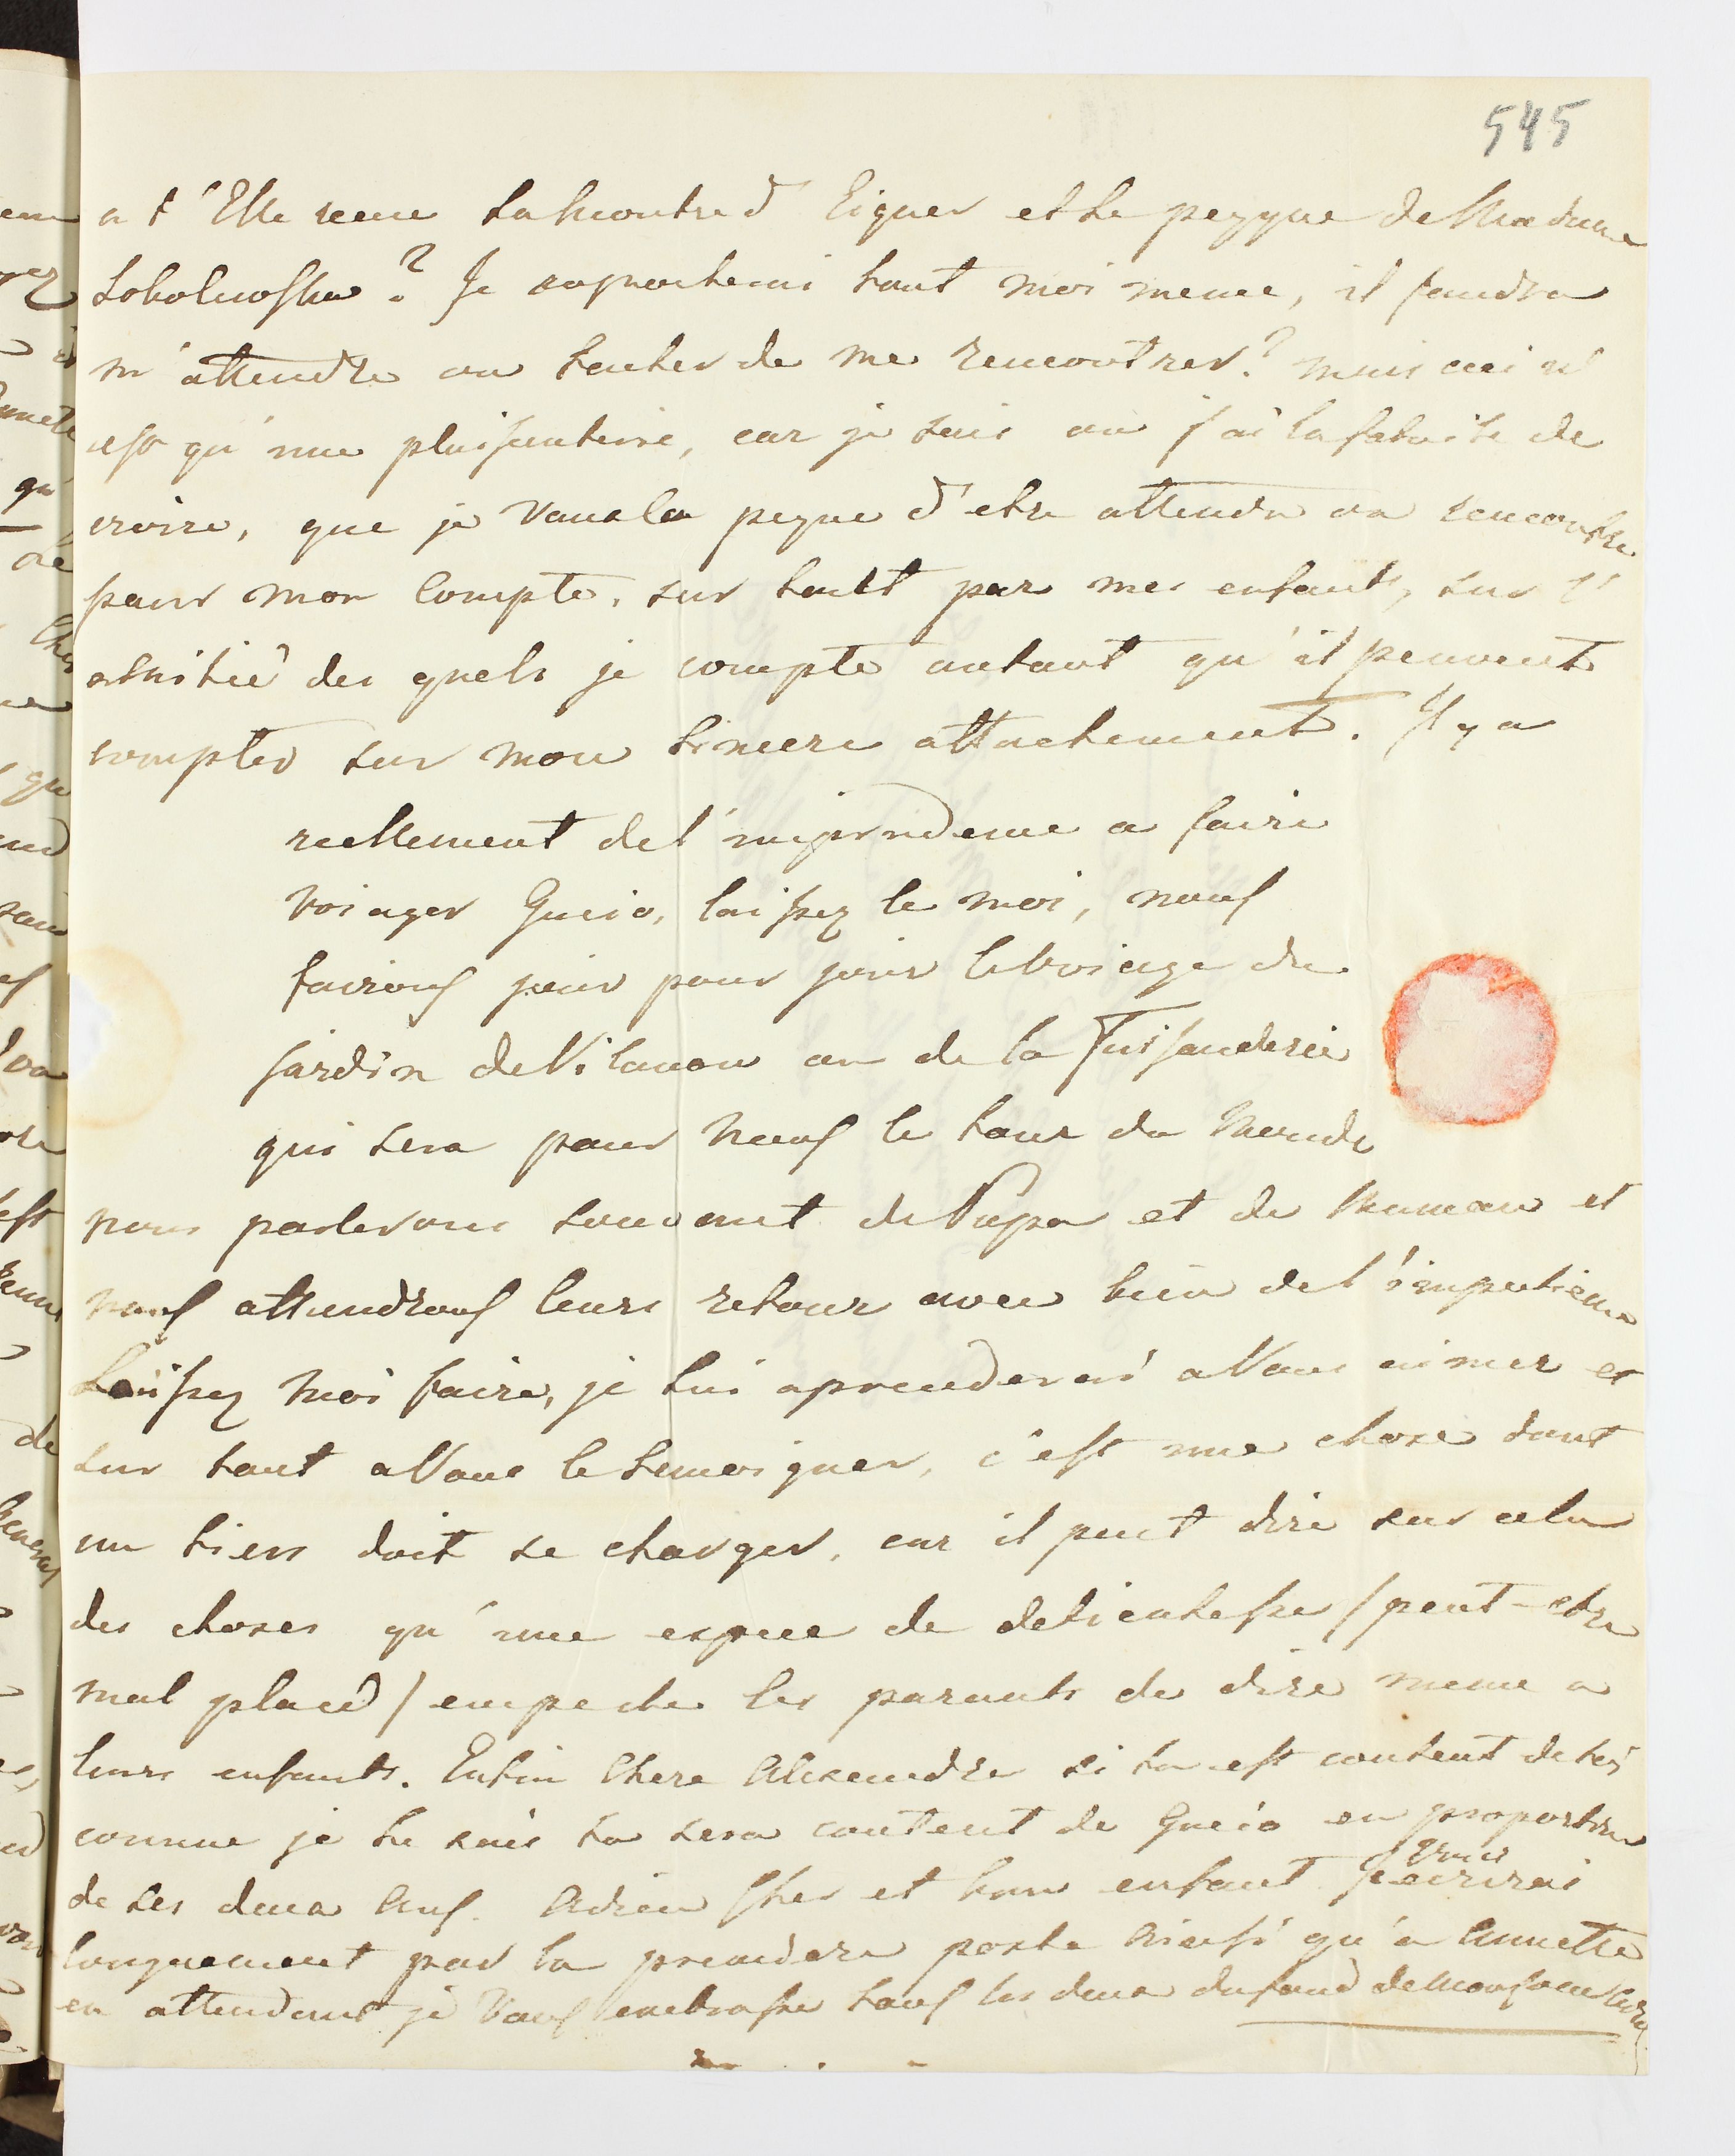 545
a t'Elle recue la montre d'Eigner et le peygne de Madame
Sobolewska? Je raporterai tout moi meme, il faudra
m'attendre ou tacher de me rencontrer? mais ceci n'
est qu'une plaisanterie, car je sais ou j'ai la fatuité de
croire, que je Vaux la peyne d'etre attendu ou rencontré
pour mon Compte, sur toutt par mes enfants, sur l'
amitié des quels je compte autant qu'il peuvent
compter sur mon sincere attachement. Il y a
reellement de l'imprudence a faire
voiager Gucio, laissez le moi, nous
fairons jour pour jour le voiage du
jardin de Vilanow ou de la Faisanderie
qui sera pour nous le tour du Monde
nous parlerons souvant de Papa et de Maman et
nous attendrons leurs retour avec bien de l'impatience
Laissez moi faire, je lui aprenderai a Vous aimer et
sur tout a Vous le temoigner, c'est une chose dont
un tiers doit se charger, car il peut dire sur cela
des choses qu'une espece de delicatesse / peut-etre
mal placé / empeche les parents de dire meme a
leurs enfants. Enfin Chere Alexandre si tu est content de toi
comme je le suis tu sera content de Gucio en proportion
de ses deux ans. Adieu Cher et bon enfant Je ecrirai
longuement par la premiere poste ainsi qu'a Annette
en attendant je Vous embrasse tous les deux du fond de mon coeur